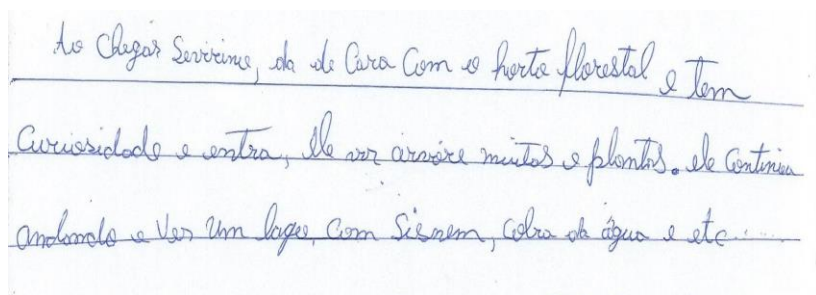 Ao chegar Severino, da de Cara Com o horto florestal e tem
Curiosidade e entra, Ele ver arvore muitas e plantas. ele Continua
andando e Ver Um lago, com Sisnem, cobra da água e etc......